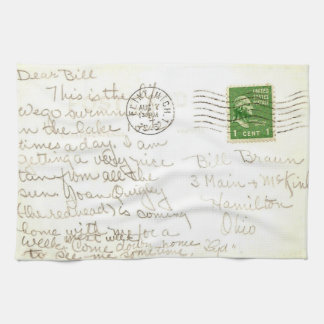 Dear Bill
This is the
We go swimming
in the lake
times a day. I am
getting a very nice
tan from all the
sun. Joan Quigley
(the redhead) is coming
home with me for a
week next week.
Come down home
to see me sometime,
Bill Braun
3 Main &
Hamilton
Ohio
FLINT, MICH.
AUG 2
UNITED STATES
POSTAGE
1 CENT 1